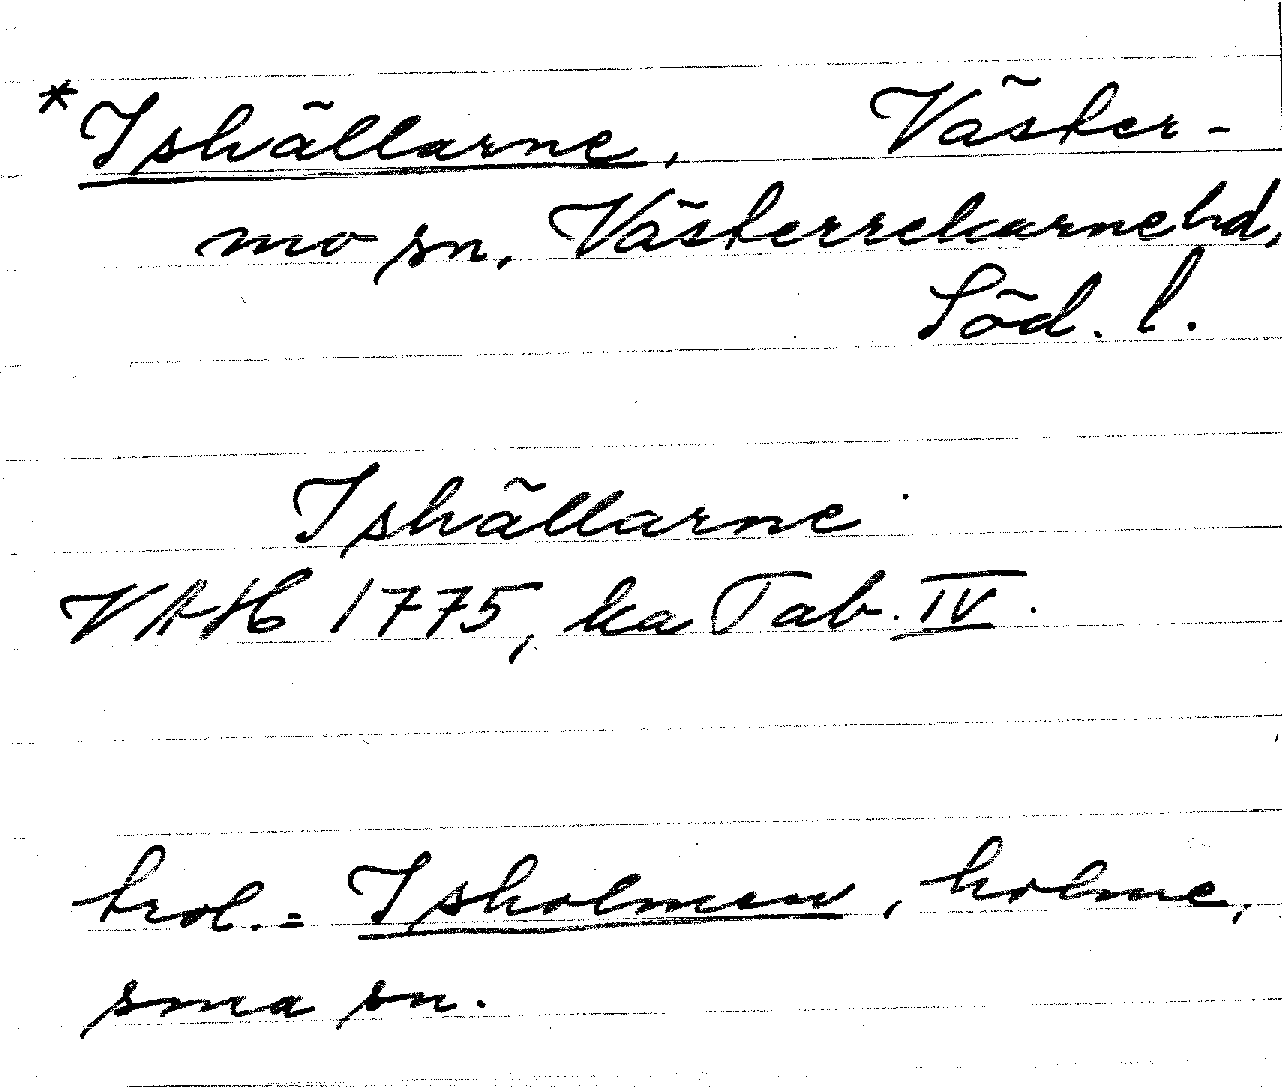 *Ishällarne, Väster-
mo sn, Västerrekarne hd,
Söd. l.
Ishällarne
VAH 1775, ka Tab. IV.
trol. = Isholmen, holme,
sma sn.